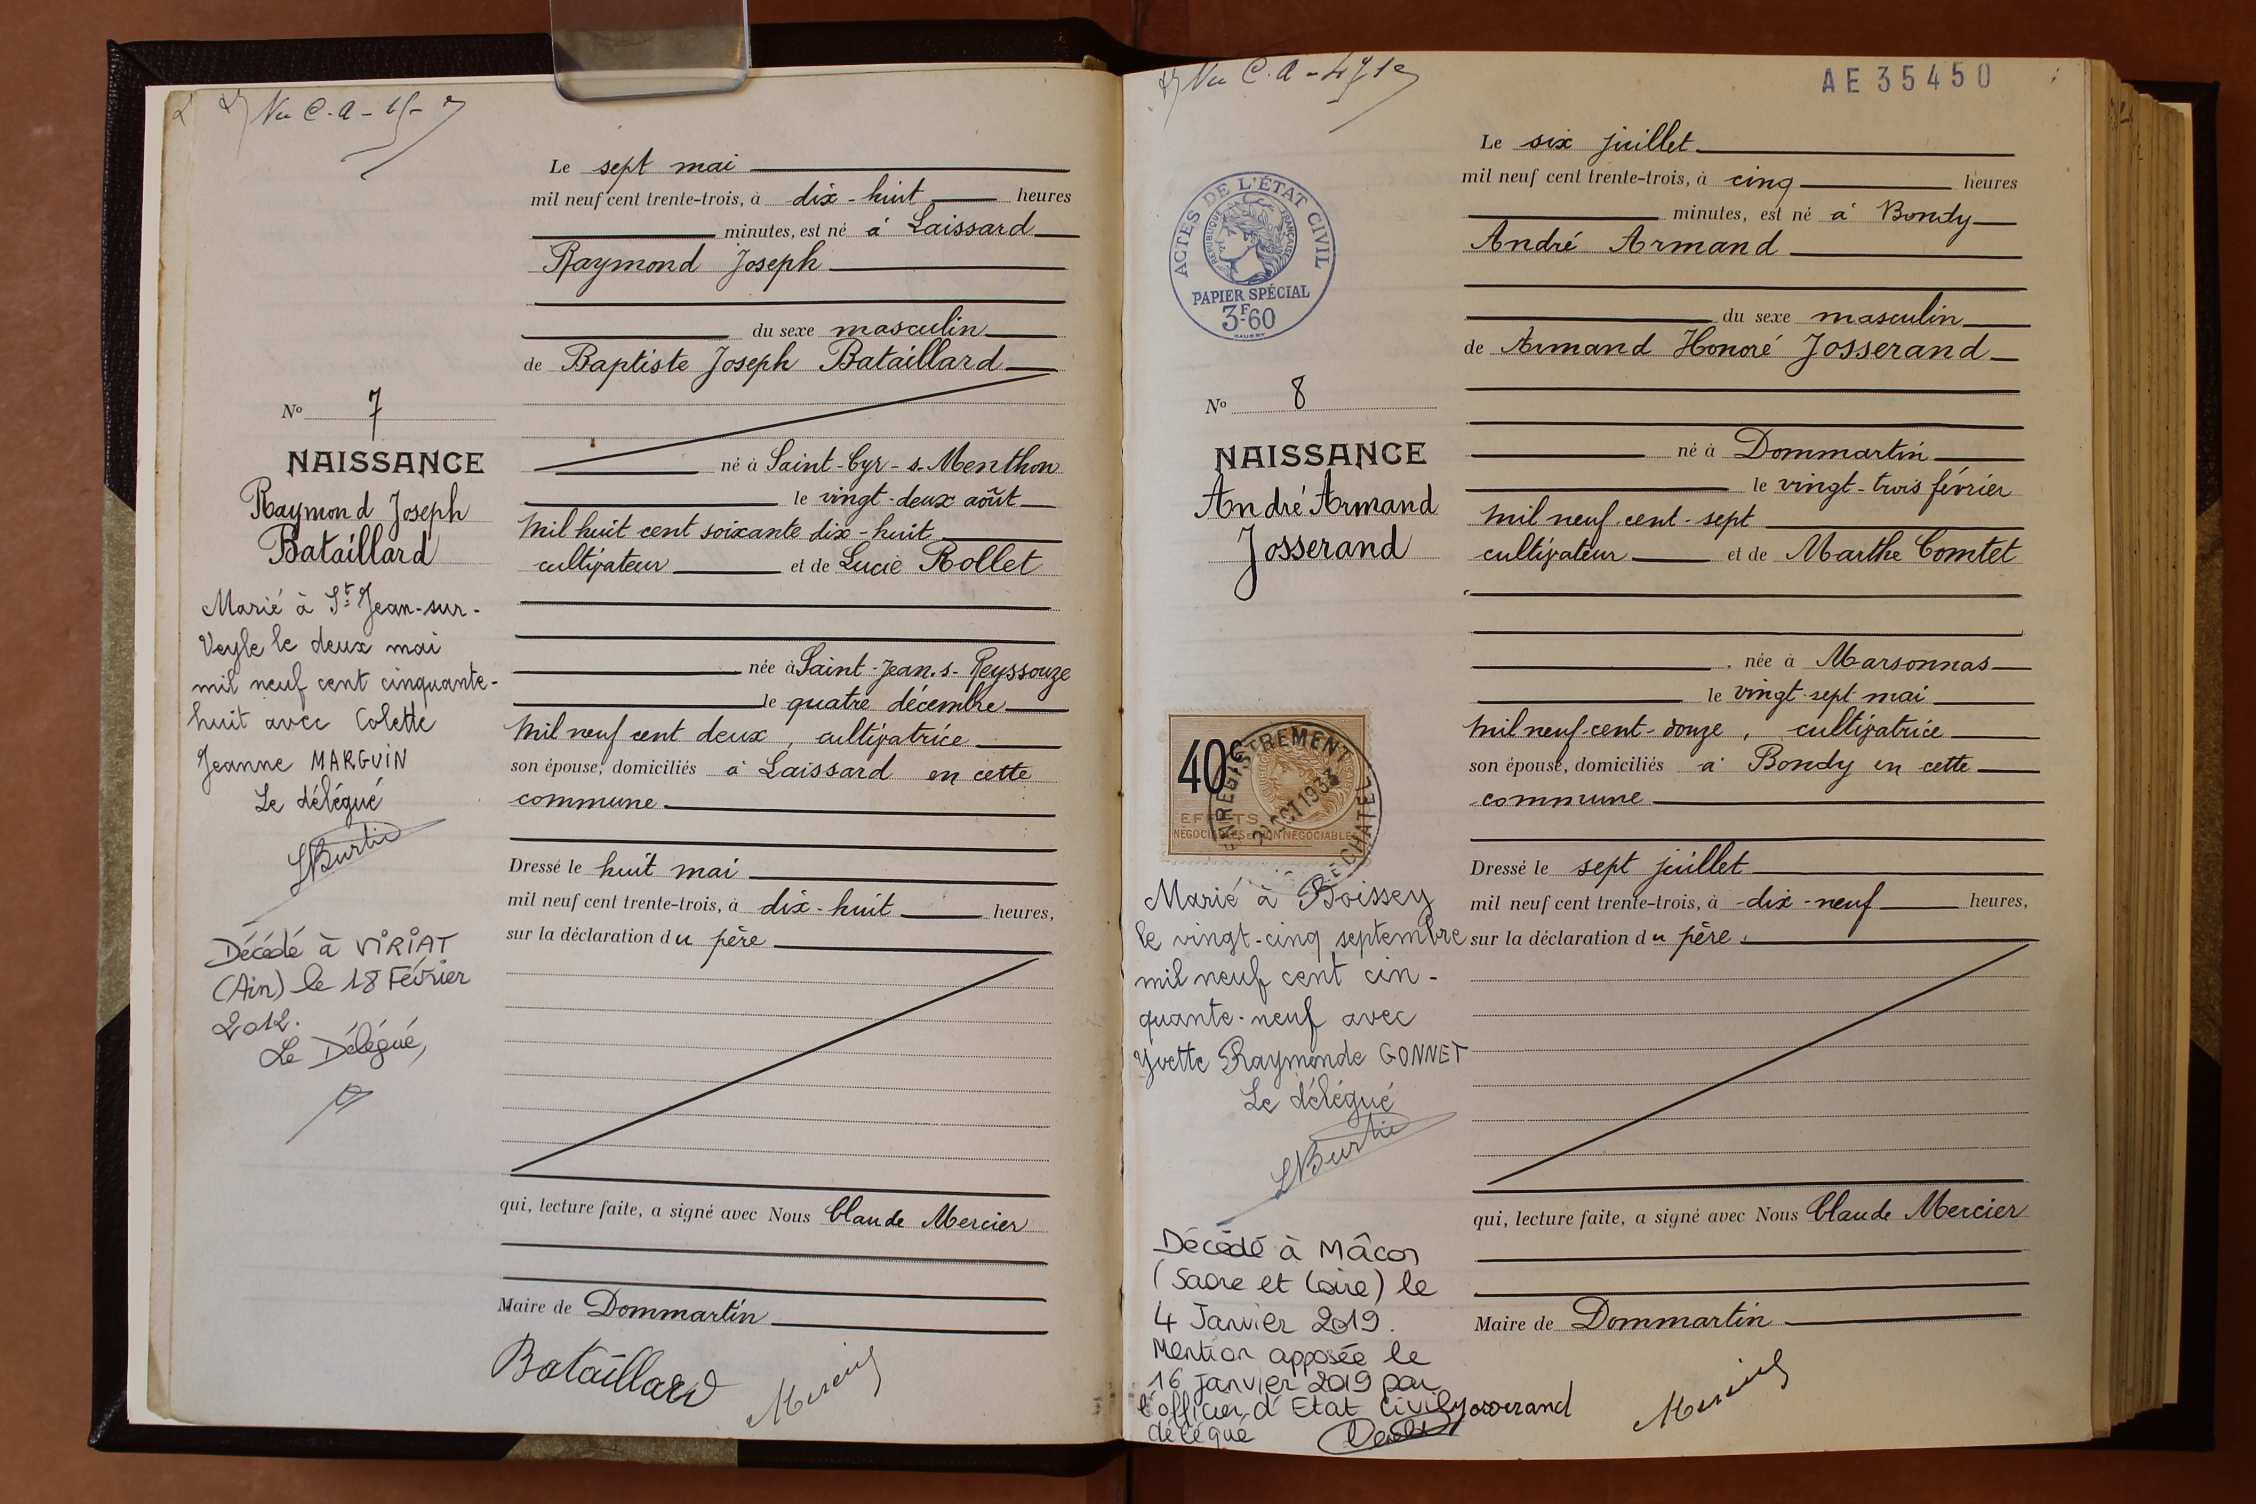 Vu C. A -
Le sept mai
mil neuf cent trente-trois, à dix-huit heures
minutes, est né à Laissard
Raymond Joseph
du sexe masculin
de Baptiste Joseph Bataillard
né à Saint-Cyr-s-Menthon
le vingt-deux août
mil huit cent soixante dix-huit
cultivateur et de Lucie Rollet
née à Saint-Jean-s-Reyssouze
le quatre décembre
mil neuf cent deux, cultivatrice
son épouse, domiciliés à Laissard en cette
commune
Dressé le huit mai
mil neuf cent trente-trois, à dix-huit heures,
sur la déclaration du père
qui, lecture faite, a signé avec Nous Claude Mercier
Maire de Dommartin
Bataillard Mercier
No 7
NAISSANCE
Raymond Joseph
Bataillard
Marié à St Jean-sur-
Veyle le deux mai
mil neuf cent cinquante-
huit avec Colette
Jeanne MARGUIN
Le délégué
Décédé à VIRIAT
(Ain) le 18 Février
2012.
Le Délégué,
Vu C. A -
AE 35450
Le six juillet
mil neuf cent trente-trois, à cinq heures
minutes, est né à Bondy
André Armand
du sexe masculin
de Armand Honoré Josserand
né à Dommartin
le vingt-trois février
mil neuf-cent-sept
cultivateur et de Marthe Comtet
née à Marsonnas
le vingt-sept mai
mil neuf-cent-douze, cultivatrice
son épouse, domiciliés à Bondy en cette
commune
Dressé le sept juillet
mil neuf cent trente-trois, à dix-neuf heures,
sur la déclaration du père,
qui, lecture faite, a signé avec Nous Claude Mercier
Maire de Dommartin
Josserand Mercier
ACTES DE L'ÉTAT CIVIL
RÉPUBLIQUE FRANÇAISE
PAPIER SPÉCIAL
3F60
No 8
NAISSANCE
André Armand
Josserand
40c
ENREGISTREMENT
OCT 1933
EFFETS
NÉGOCIABLES et NON NÉGOCIABLES
CHATEL
Marié à Boissey
le vingt-cinq septembre
mil neuf cent cin-
quante-neuf avec
Yvette Raymonde GONNET
Le délégué
Décédé à Mâcon
(Saone et Loire) le
4 Janvier 2019.
Mention apposée le
16 janvier 2019 par
l'officier d'Etat Civil
délégué